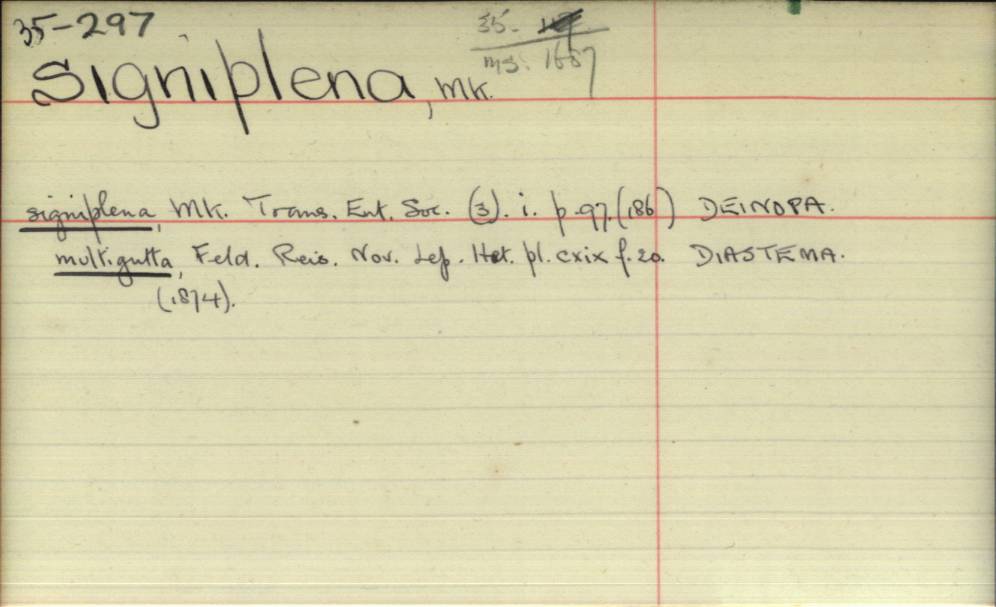 35-297
35.
ms. 1687
Signiplena, Mk.
signiplena, Mk. Trans. Ent. Soc. (3). i. p. 97. (186 ) DEINOPA.
multigutta, Feld. Reis. Nov. Lep. Het. pl. cxix f. 20. DIASTEMA.
(1874).